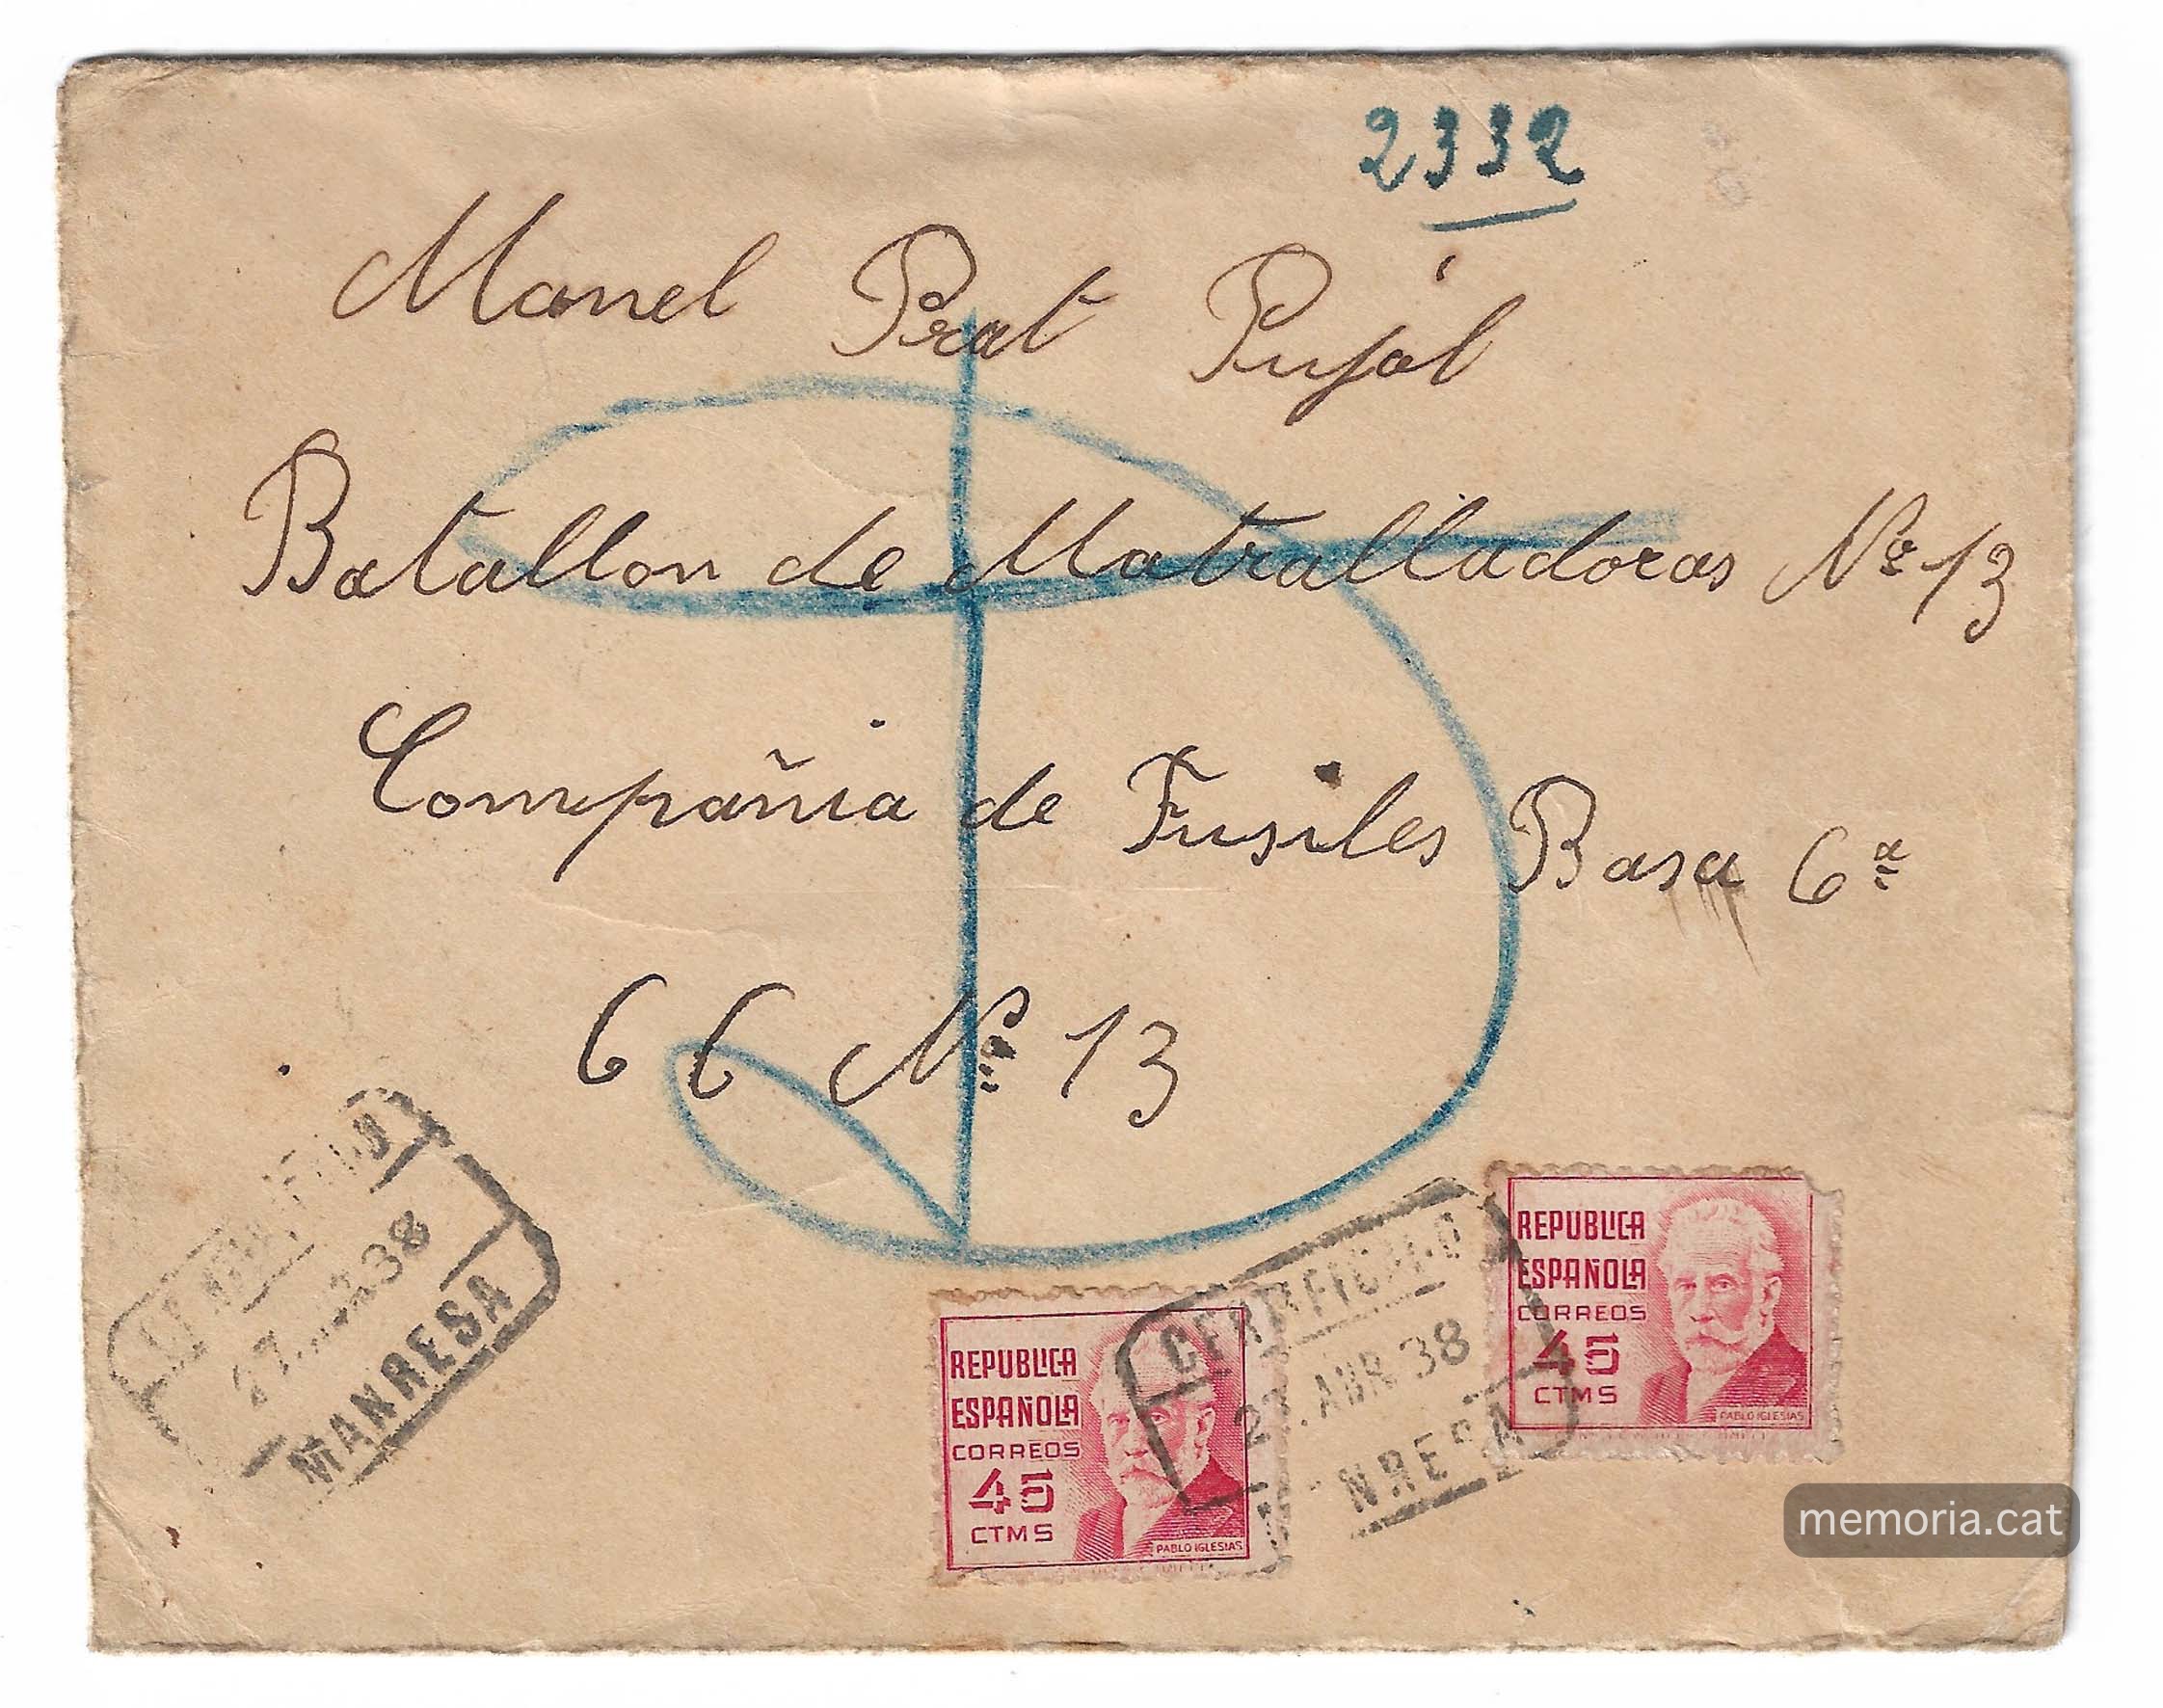 2332
Manel Prat Pujol
Batallon de Matralladoras Nº 13
Compañia de Fusiles Basa 6ª
6 6 Nº 13
27. 38
MANRESA
CERTIFICADO
27. ABR 38
NRESA
REPUBLICA
ESPAÑOLA
CORREOS
45
CTMS
PABLO IGLESIAS
REPUBLICA
ESPAÑOLA
CORREOS
45
CTMS
PABLO IGLESIAS
memoria.cat